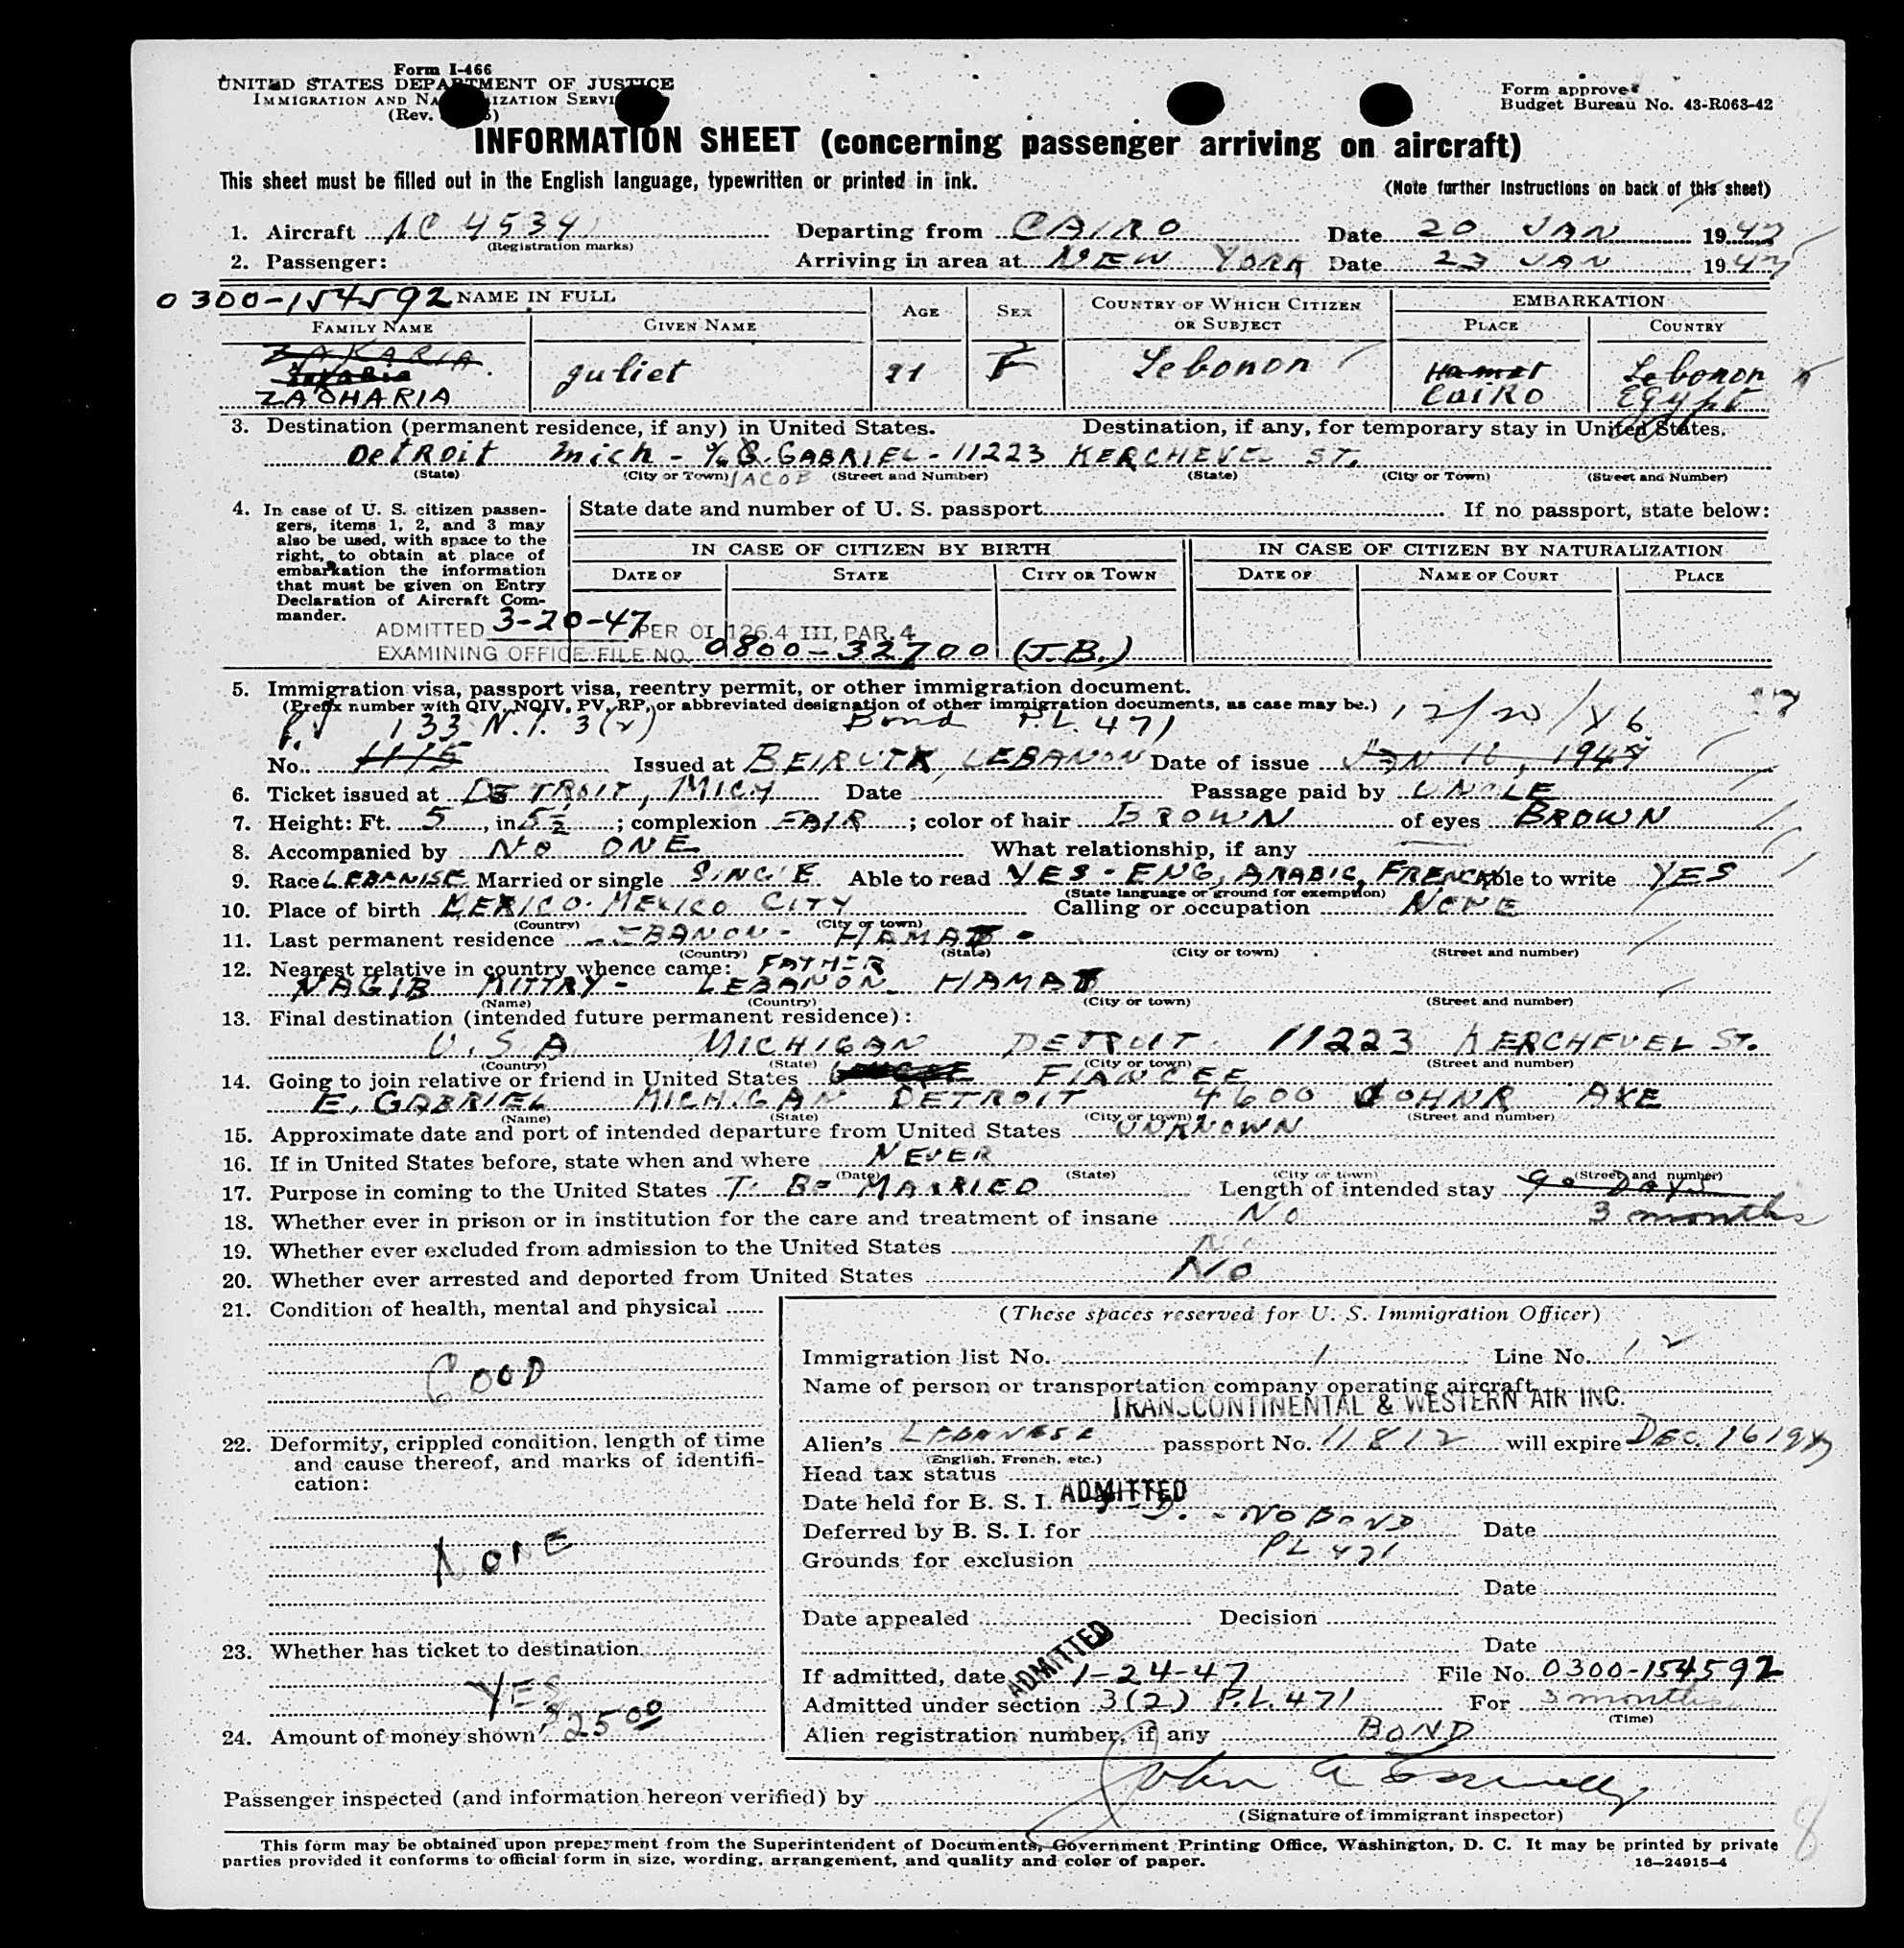 Form I-466
UNITED STATES DEPARTMENT OF JUSTICE
IMMIGRATION AND NATURALIZATION SERVICE
(Rev.
Form approved
Budget Bureau No. 43-R063-42
INFORMATION SHEET (concerning passenger arriving on aircraft)
This sheet must be filled out in the English language, typewritten or printed in ink. (Note further instructions on back of this sheet)
1. Aircraft NC 4534 Departing from CAIRO Date 20 JAN 1947
(Registration marks)
2. Passenger: Arriving in area at NEW YORK Date 23 JAN 1947
0300-154592 NAME IN FULL AGE SEX COUNTRY OF WHICH CITIZEN OR SUBJECT EMBARKATION
FAMILY NAME GIVEN NAME PLACE COUNTRY
ZAKARIA
Zakaria juliet 21 F Lebonon Hamat Lebonon
ZACHARIA CaiRO Egypt
3. Destination (permanent residence, if any) in United States. Destination, if any, for temporary stay in United States.
DetRoit mich - % G. GABRIEL - 11223 KERCHEVEL ST.
(State) (City or Town) JACOB (Street and Number) (State) (City or Town) (Street and Number)
4. In case of U. S. citizen passengers, items 1, 2, and 3 may also be used, with space to the right, to obtain at place of embarkation the information that must be given on Entry Declaration of Aircraft Commander.
State date and number of U. S. passport If no passport, state below:
IN CASE OF CITIZEN BY BIRTH IN CASE OF CITIZEN BY NATURALIZATION
DATE OF STATE CITY OR TOWN DATE OF NAME OF COURT PLACE
ADMITTED 3-20-47 PER OI 126.4 III, PAR. 4
EXAMINING OFFICE FILE NO. 0800-32700 (J.B.)
5. Immigration visa, passport visa, reentry permit, or other immigration document.
(Prefix number with QIV, NQIV, PV, RP, or abbreviated designation of other immigration documents, as case may be.) 12/20/46
PV 133 N.I. 3(2) Bond P.L. 471
No. 1115 Issued at BEIRUTH, LEBANON Date of issue JAN 10, 1947
6. Ticket issued at DETROIT, MICH Date Passage paid by UNCLE
7. Height: Ft. 5, in 5½; complexion FAIR; color of hair BROWN of eyes BROWN
8. Accompanied by NO ONE What relationship, if any
9. Race LEBANISE Married or single SINGLE Able to read YES - ENG, ARABIC, FRENCH Able to write YES
(State language or ground for exemption)
10. Place of birth MEXICO. MEXICO CITY Calling or occupation NONE
(Country) (City or town)
11. Last permanent residence LEBANON - HAMAT -
(Country) (State) (City or town) (Street and number)
12. Nearest relative in country whence came: FATHER
NAGIB MITTRY - LEBANON HAMAT
(Name) (Country) (City or town) (Street and number)
13. Final destination (intended future permanent residence):
U.S.A. MICHIGAN DETROIT 11223 KERCHEVEL ST.
(Country) (State) (City or town) (Street and number)
14. Going to join relative or friend in United States FIANCEE
E. GABRIEL MICHIGAN DETROIT 4600 JOHNR AVE
(Name) (State) (City or town) (Street and number)
15. Approximate date and port of intended departure from United States UNKNOWN
16. If in United States before, state when and where NEVER
(Date) (State) (City or town) (Street and number)
17. Purpose in coming to the United States TO BE MARRIED Length of intended stay 90 Days
18. Whether ever in prison or in institution for the care and treatment of insane NO 3 months
19. Whether ever excluded from admission to the United States No
20. Whether ever arrested and deported from United States No
21. Condition of health, mental and physical
GOOD
22. Deformity, crippled condition, length of time and cause thereof, and marks of identification:
NONE
23. Whether has ticket to destination
YES
24. Amount of money shown $25.00
(These spaces reserved for U. S. Immigration Officer)
Immigration list No. 1 Line No. 12
Name of person or transportation company operating aircraft
TRANSCONTINENTAL & WESTERN AIR INC.
Alien's LEBANESE passport No. 11812 will expire DEC. 16 1947
(English, French, etc.)
Head tax status
Date held for B. S. I. ADMITTED
Deferred by B. S. I. for - NO BOND Date
Grounds for exclusion PL 471
Date
Date appealed Decision
Date
If admitted, date ADMITTED 1-24-47 File No. 0300-154592
Admitted under section 3(2) P.L. 471 For 3 months
(Time)
Alien registration number, if any BOND
Passenger inspected (and information hereon verified) by John A
(Signature of immigrant inspector)
8
This form may be obtained upon prepayment from the Superintendent of Documents, Government Printing Office, Washington, D. C. It may be printed by private
parties provided it conforms to official form in size, wording, arrangement, and quality and color of paper. 16—24915-4